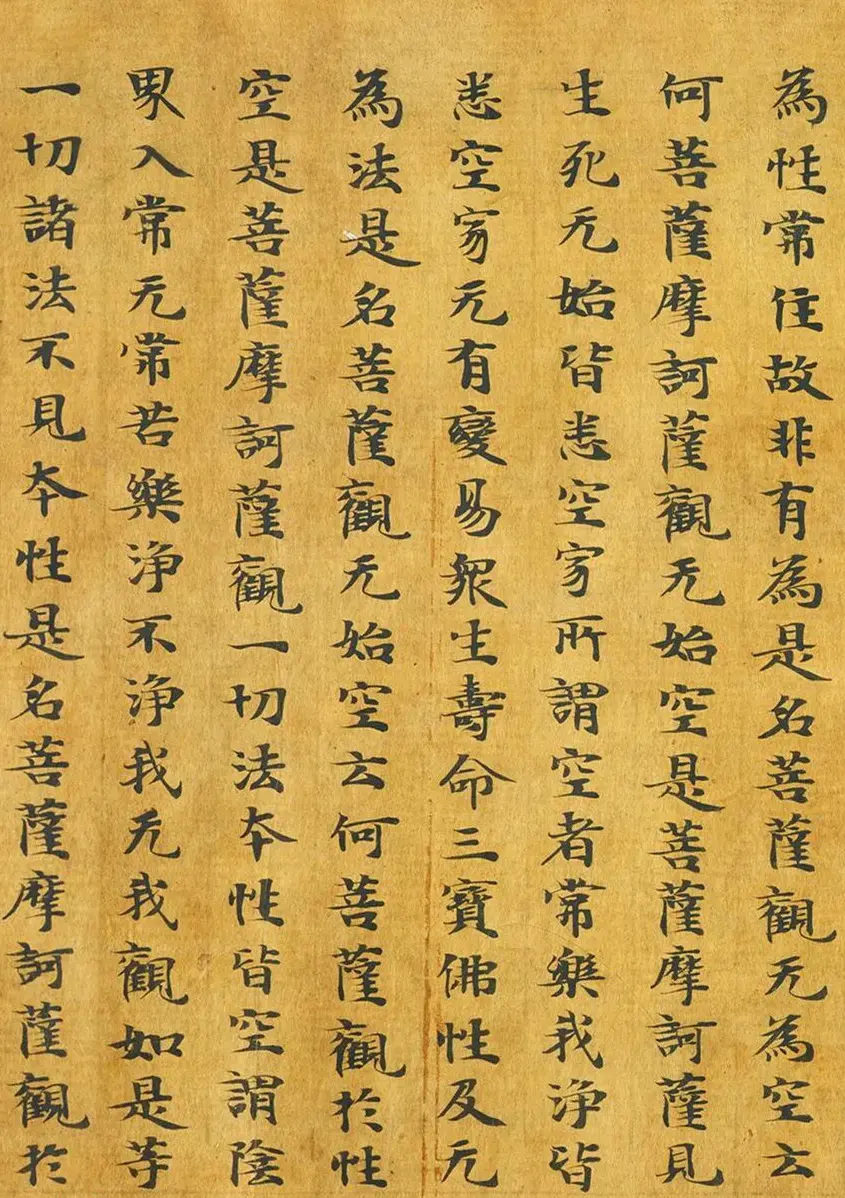 為性常住故非有為是名菩薩觀无為空云
何菩薩摩訶薩觀无始空是菩薩摩訶薩見
生死无始皆悉空寂所謂空者常樂我淨皆
悉空寂无有變易眾生壽命三寶佛性及无
為法是名菩薩觀无始空云何菩薩觀於性
空是菩薩摩訶薩觀一切法本性皆空謂陰
界入常无常苦樂淨不淨我无我觀如是等
一切諸法不見本性是名菩薩摩訶薩觀於